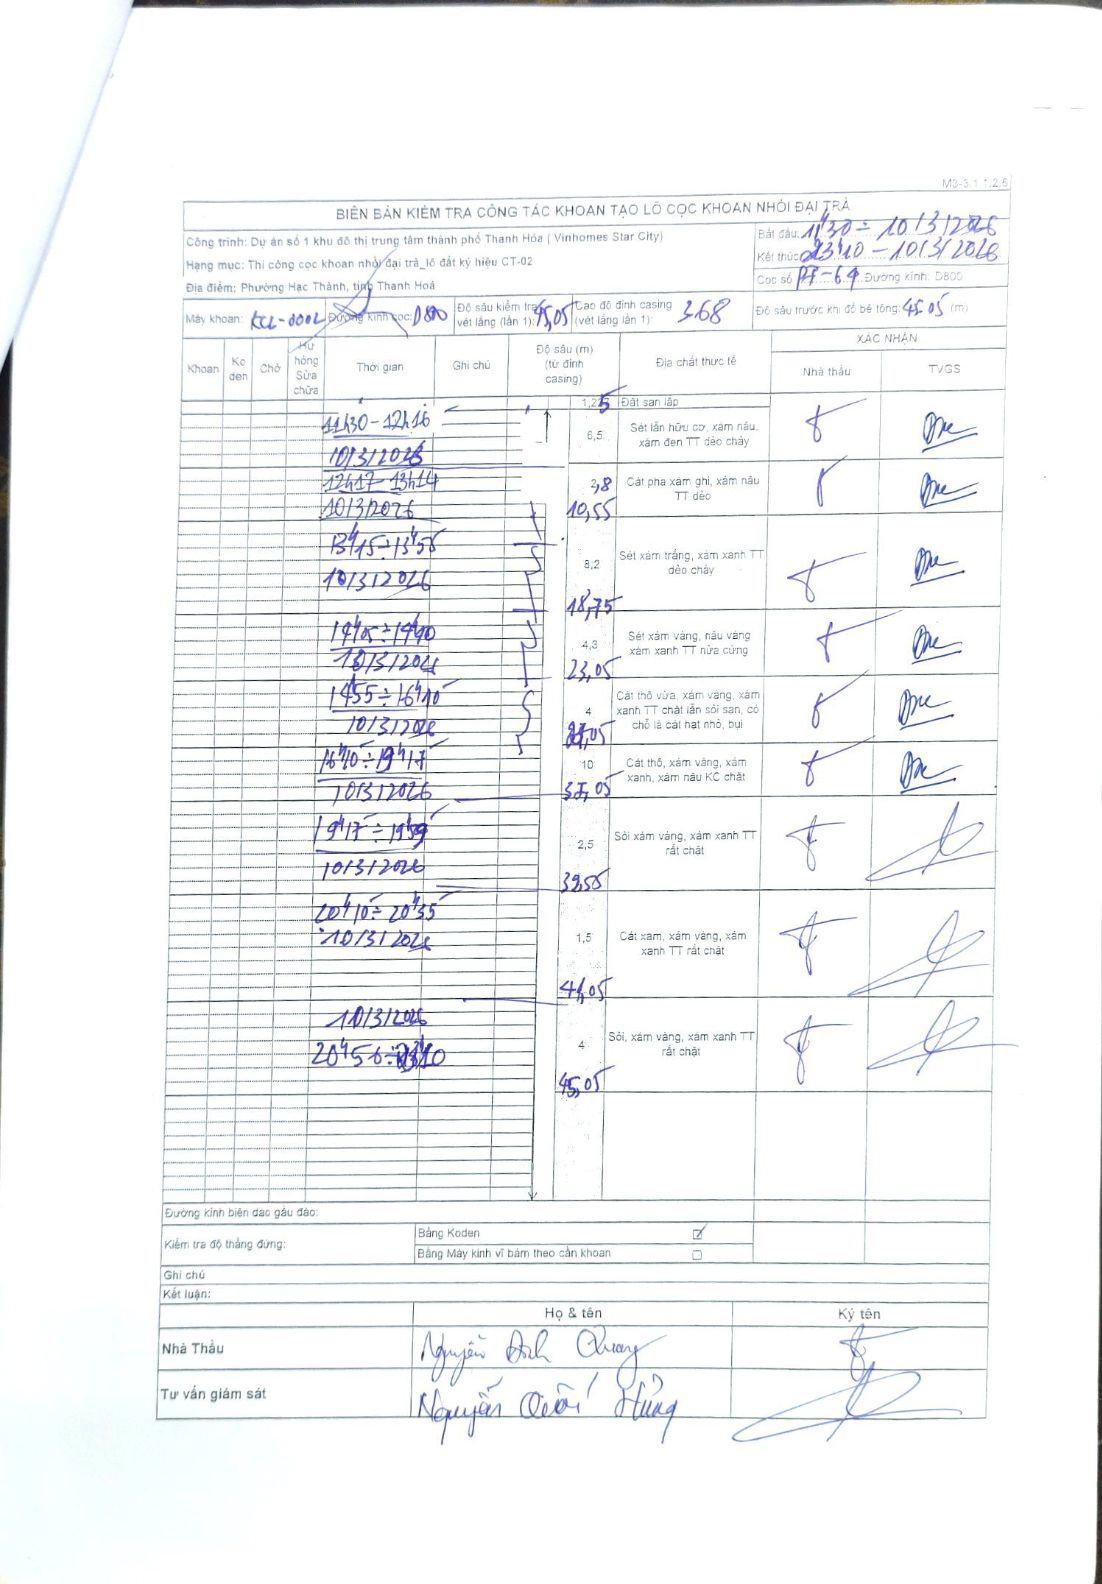 M3-3.1.1.2.5
BIÊN BẢN KIỂM TRA CÔNG TÁC KHOAN TẠO LỖ CỌC KHOAN NHỒI ĐẠI TRÀ
Công trình: Dự án số 1 khu đô thị trung tâm thành phố Thanh Hóa ( Vinhomes Star City)
Hạng mục: Thi công cọc khoan nhồi đại trà_lô đất ký hiệu CT-02
Địa điểm: Phường Hạc Thành, tỉnh Thanh Hoá
Bắt đầu: 11h30 ÷ 10/3/2026
Kết thúc: 23h10 - 10/3/2026
Cọc số PT-64 Đường kính: D800
Máy khoan: KCL-0002 Đường kính cọc: D800
Độ sâu kiểm tra vét lắng (lần 1): 45,05
Cao độ đỉnh casing (vét lắng lần 1): 3.68
Độ sâu trước khi đổ bê tông: 45.05 (m)
Khoan
Ko đen
Chờ
Hư hỏng Sửa chữa
Thời gian
Ghi chú
Độ sâu (m) (từ đỉnh casing)
Địa chất thực tế
XÁC NHẬN
Nhà thầu
TVGS
1,25 Đất san lấp
11h30 - 12h16
10/3/2026
6,5
Sét lẫn hữu cơ, xám nâu,
xám đen TT dẻo chảy
12h17 - 13h14
10/3/2026
3,8
10,55
Cát pha xám ghi, xám nâu
TT dẻo
13h15 ÷ 13h55
10/3/2026
8,2
18,75
Sét xám trắng, xám xanh TT
dẻo chảy
14h05 ÷ 14h40
10/3/2026
4,3
23,05
Sét xám vàng, nâu vàng
xám xanh TT nửa cứng
14h55 ÷ 16h10
10/3/2026
4
27,05
Cát thô vừa, xám vàng, xám
xanh TT chặt lẫn sỏi sạn, có
chỗ là cát hạt nhỏ, bụi
16h10 ÷ 19h17
10/3/2026
10
37,05
Cát thô, xám vàng, xám
xanh, xám nâu KC chặt
19h17 ÷ 19h59
10/3/2026
2,5
39,55
Sỏi xám vàng, xám xanh TT
rất chặt
20h10 ÷ 20h35
10/3/2026
1,5
41,05
Cát xam, xám vàng, xám
xanh TT rất chặt
10/3/2026
20h56 ÷ 23h10
4
45,05
Sỏi, xám vàng, xám xanh TT
rất chặt
Đường kính biên dao gầu đào:
Kiểm tra độ thẳng đứng:
Bằng Koden
Bằng Máy kinh vĩ bám theo cần khoan
Ghi chú
Kết luận:
Họ & tên
Ký tên
Nhà Thầu
Nguyễn Đình Quang
Tư vấn giám sát
Nguyễn Quốc Hùng